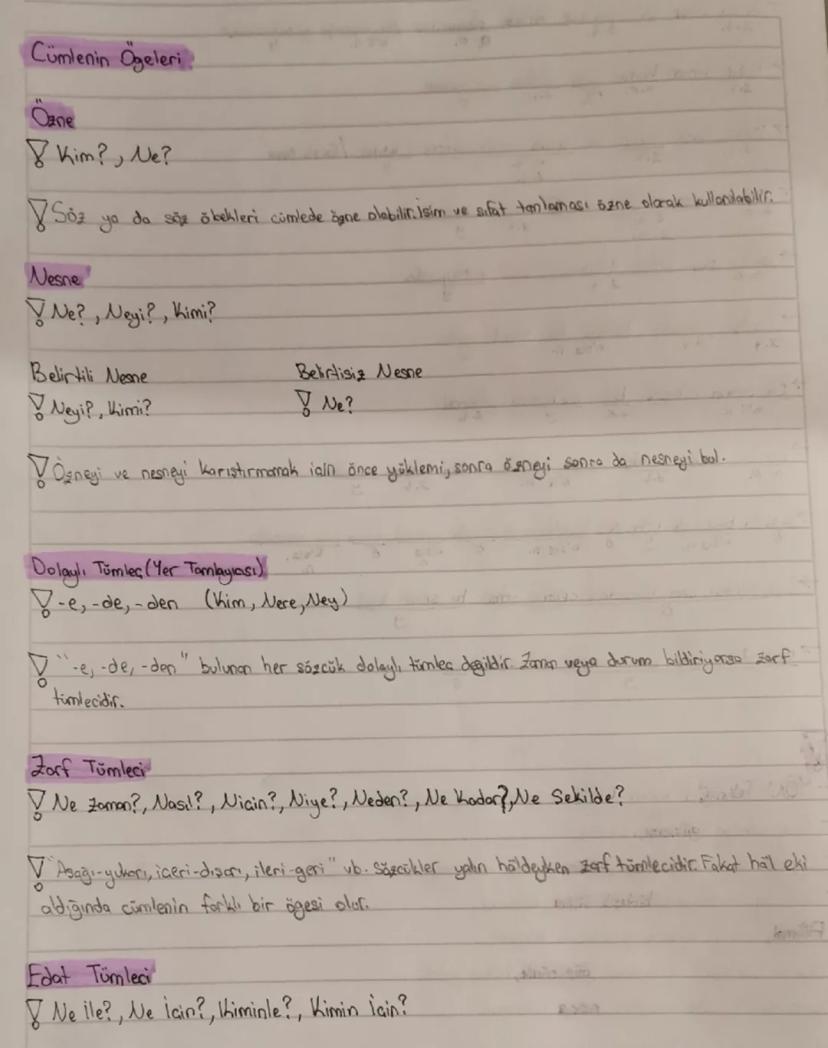 Cümlenin Ögeleri
Özne
! Kim?, Ne?
! Söz ya da söz öbekleri cümlede özne olabilir. İsim ve sıfat tamlaması özne olarak kullanılabilir.
Nesne
! Ne?, Neyi?, Kimi?
Belirtili Nesne Belirtisiz Nesne
! Neyi?, Kimi? ! Ne?
! Özneyi ve nesneyi karıştırmamak için önce yüklemi, sonra özneyi sonra da nesneyi bul.
Dolaylı Tümleç (Yer Tamlayıcısı)
! -e, -de, -den (Kim, Nere, Ney)
! "-e, -de, -den" bulunan her sözcük dolaylı tümleç değildir. Zaman veya durum bildiriyorsa zarf
tümlecidir.
Zarf Tümleci
! Ne zaman?, Nasıl?, Niçin?, Niye?, Neden?, Ne kadar?, Ne Şekilde?
! "Aşağı-yukarı, içeri-dışarı, ileri-geri" vb. sözcükler yalın hâldeyken zarf tümlecidir. Fakat hâl eki
aldığında cümlenin farklı bir ögesi olur.
Edat Tümleci
! Ne ile?, Ne İçin?, Kiminle?, Kimin İçin?